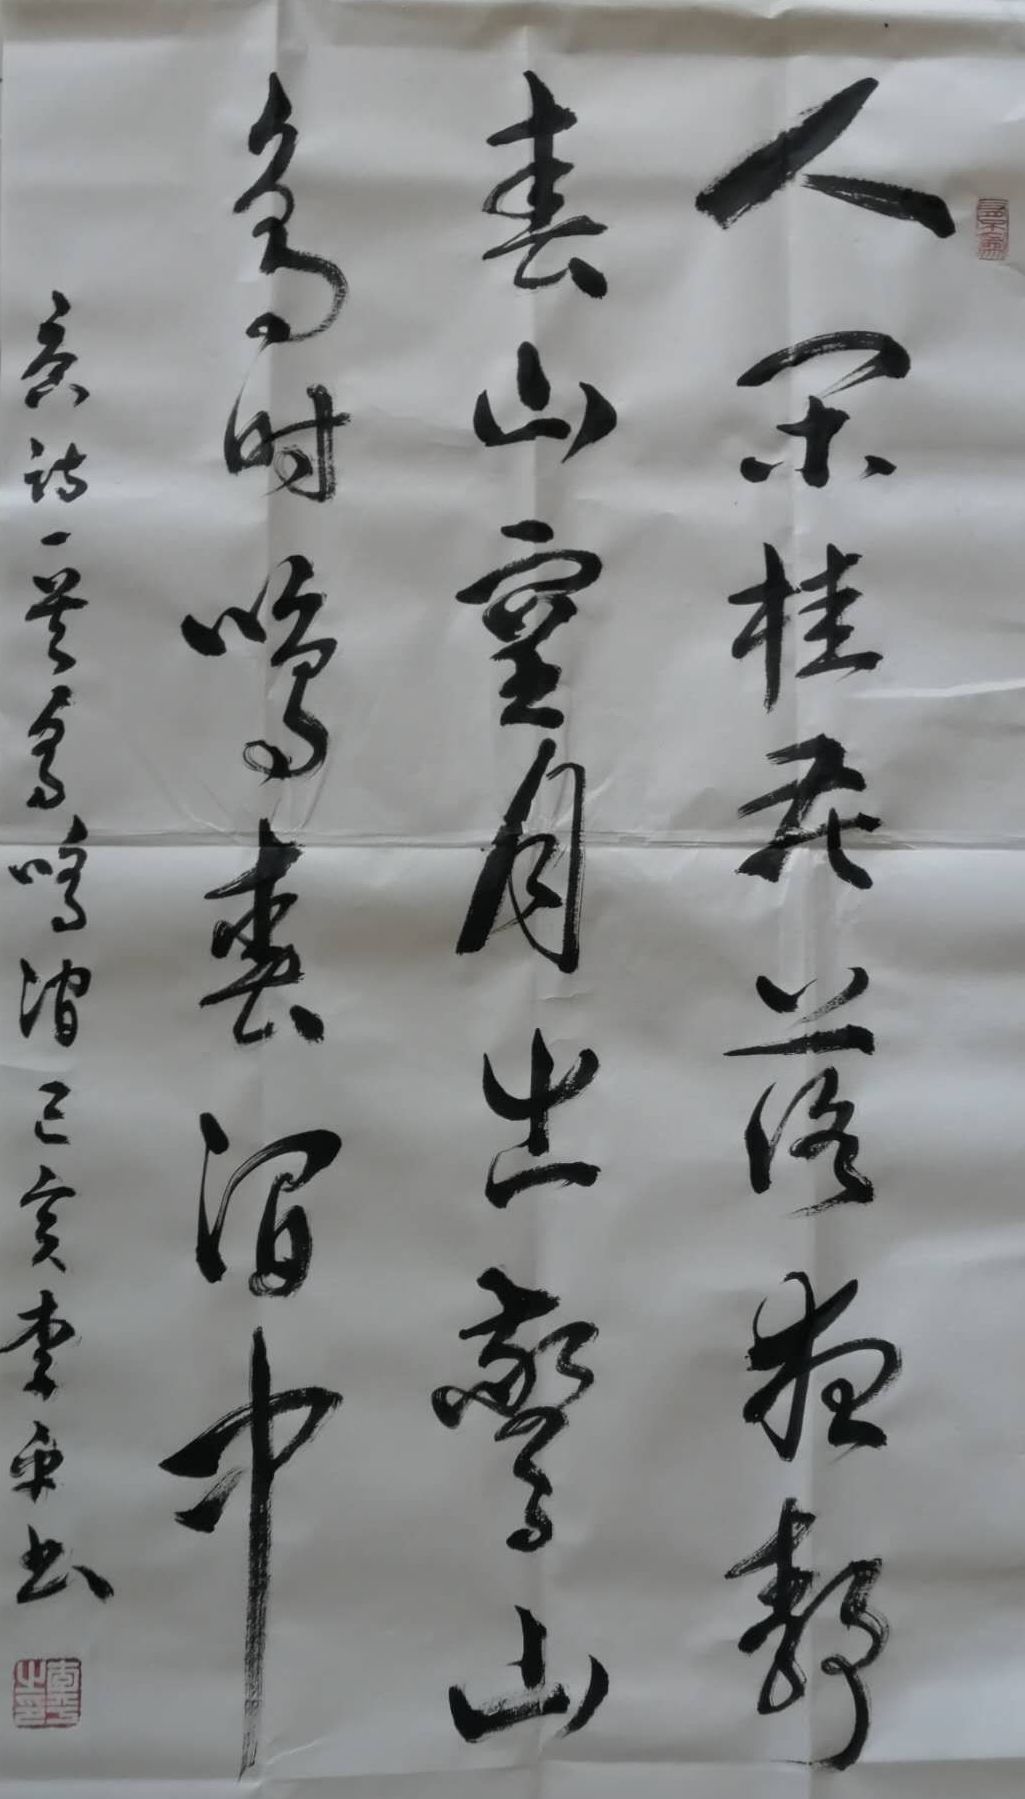 人闲桂花落夜静
春山空月出惊山
鸟时鸣春涧中
唐诗一首鸟鸣涧己亥李平书